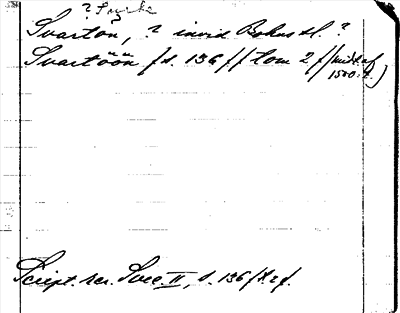 Svartön, ? invid Bohus sl. ?
Svartöön (s. 136 / / tom 2 / / midt af
1500-t.)
Script. rer. Svec. II, s. 136 f.